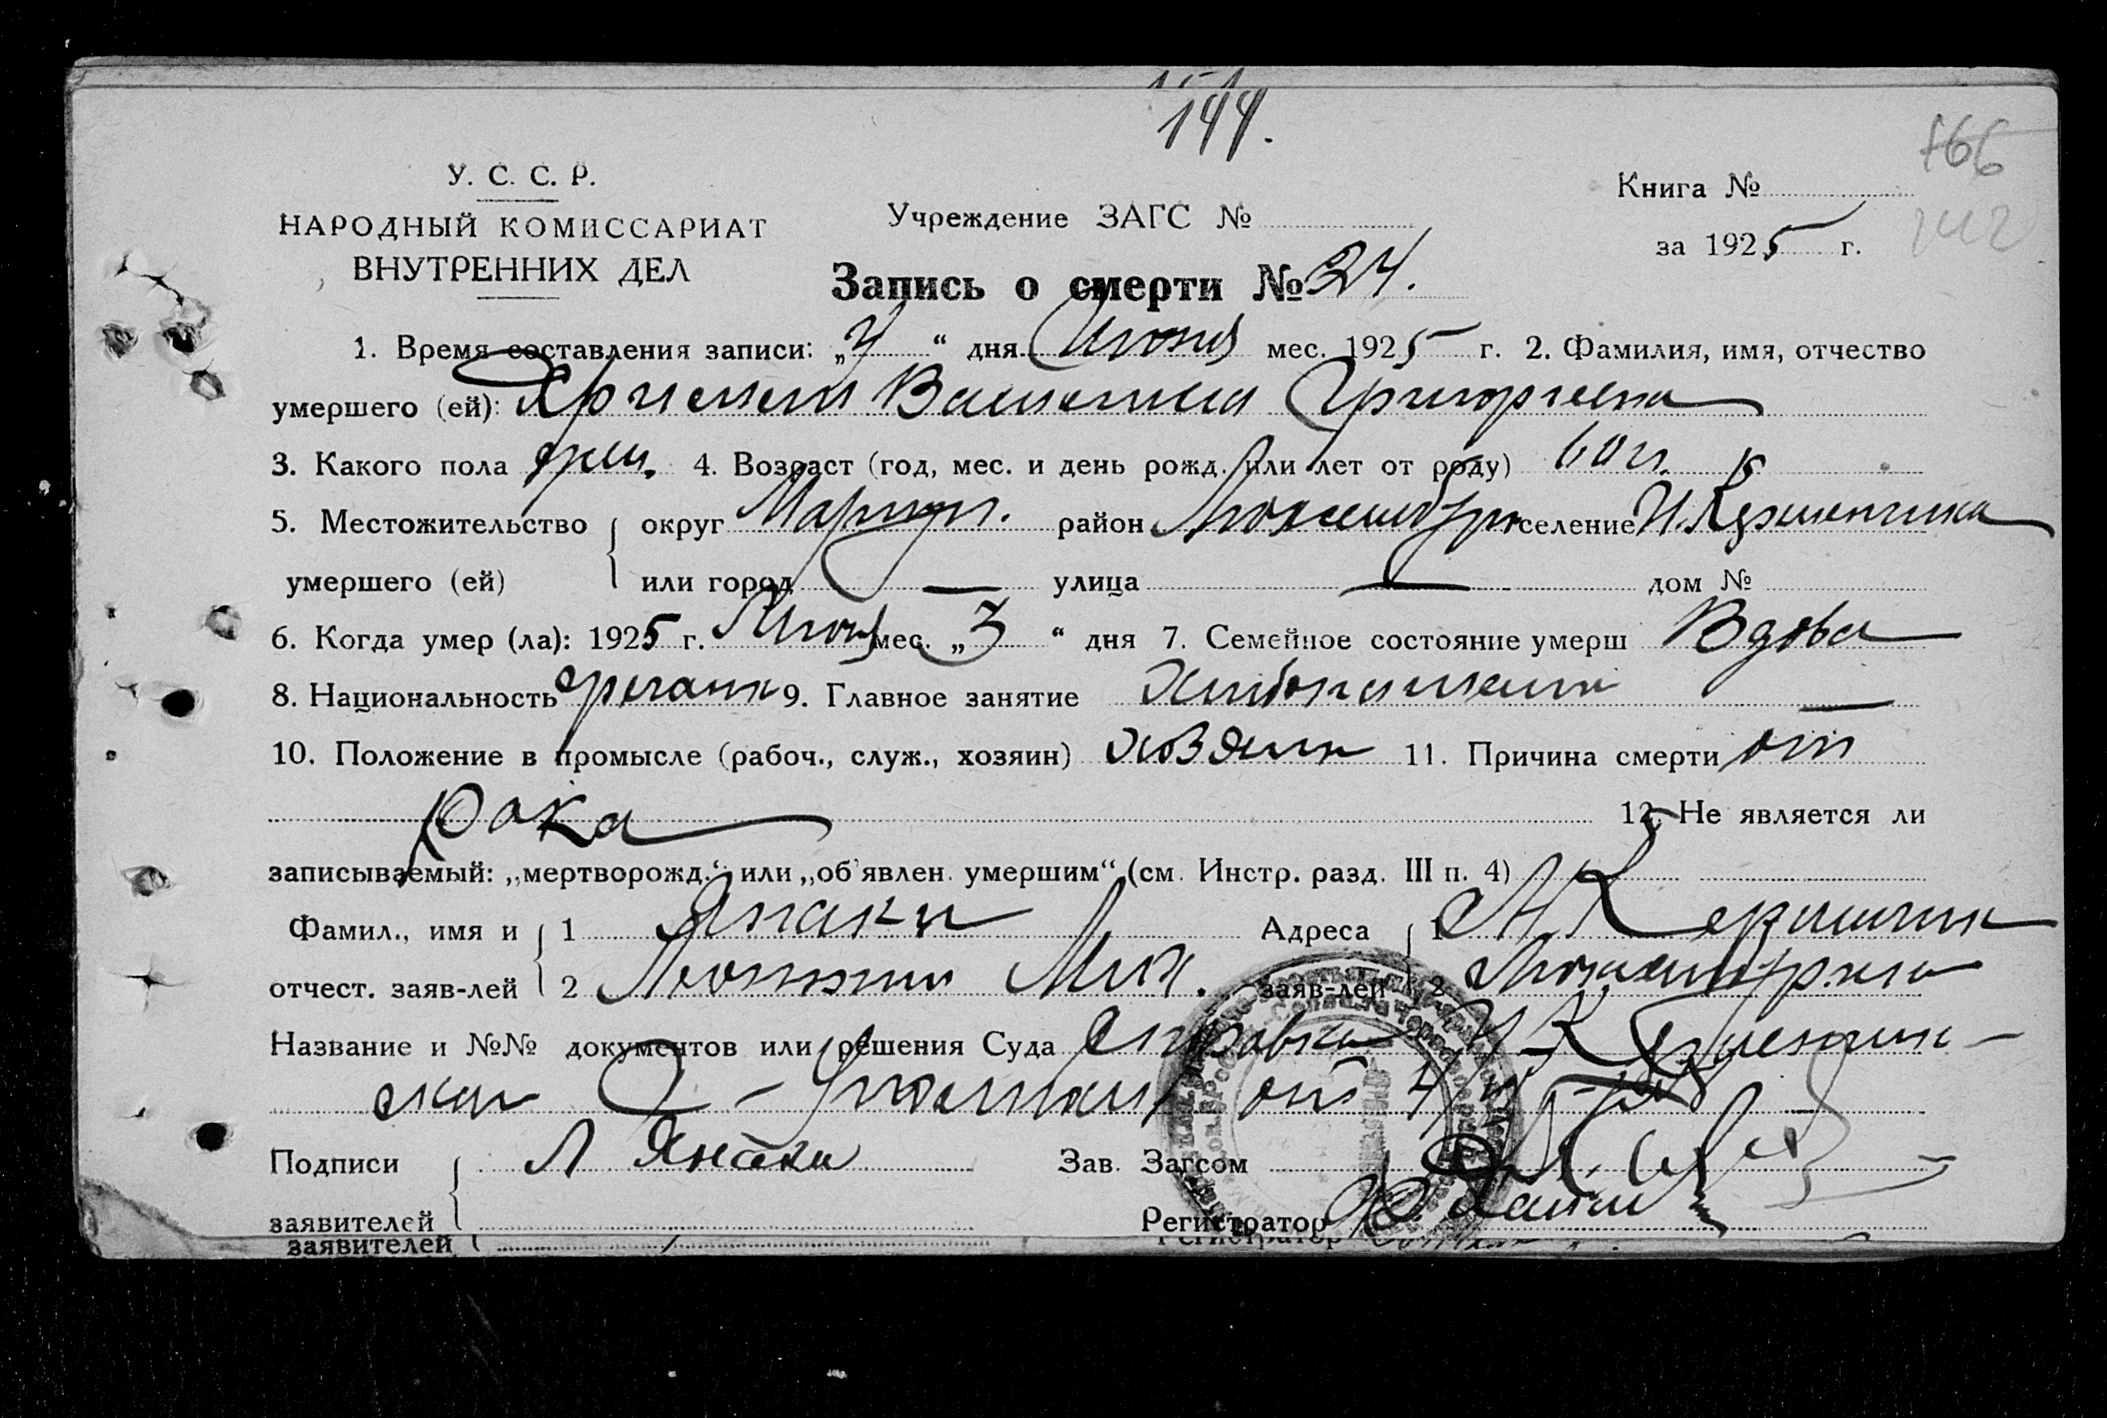 144.
166
142
У. С. С. Р.
НАРОДНЫЙ КОМИССАРИАТ
ВНУТРЕННИХ ДЕЛ
Учреждение ЗАГС №
Книга №
за 1925 г.
Запись о смерти № 24.
1. Время составления записи: „4“ дня Июня мес. 1925 г. 2. Фамилия, имя, отчество
умершего (ей): Григорьевна
3. Какого пола жен. 4. Возраст (год, мес. и день рожд. или лет от роду) 60 л.
5. Местожительство округ Мариуп. район селение Н. Керменчик
умершего (ей) или город — улица — дом №
6. Когда умер (ла): 1925 г. Июня мес. „3“ дня 7. Семейное состояние умерш Вдова
8. Национальность гречанка 9. Главное занятие
10. Положение в промысле (рабоч., служ., хозяин) хозяин 11. Причина смерти от
рака 12. Не является ли
записываемый: „мертворожд.“ или „об'явлен. умершим“ (см. Инстр. разд. III п. 4)
Фамил., имя и 1 Янаки Адреса 1 Н Керменчик
отчест. заяв-лей 2 Мих. заяв-лей 2
Название и №№ документов или решения Суда Справка Н-Керменчик-
ска от 4/
Подписи Л Янаки Зав. Загсом
заявителей Регистратор
заявителей Регистратор